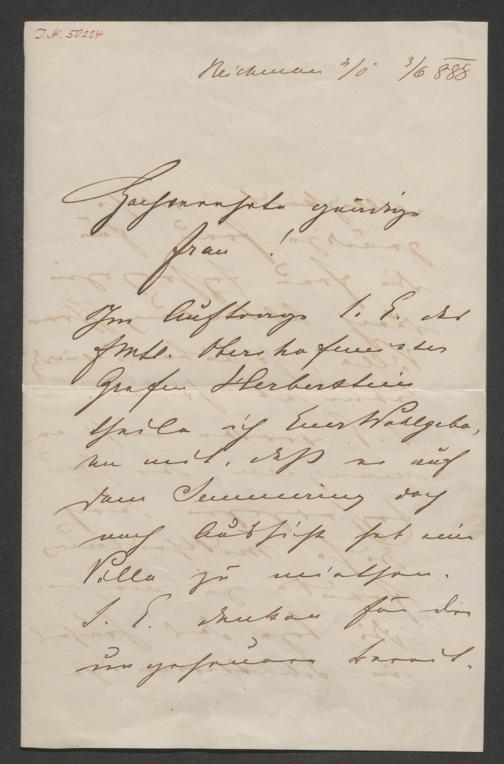 I.N. 50224
Reichenau a/d 3/6 888
Hochverehrte gnädige
Frau !
Im Auftrage S. E. des
Obersthofmeister
Grafen Herberstein
theile ich Euer Wohlgebo,
ren mit, daß es auf
dem Semmering doch
noch Aussicht hat eine
Villa zu miethen.
S. E. danken für die
ungeheuere Bereit,